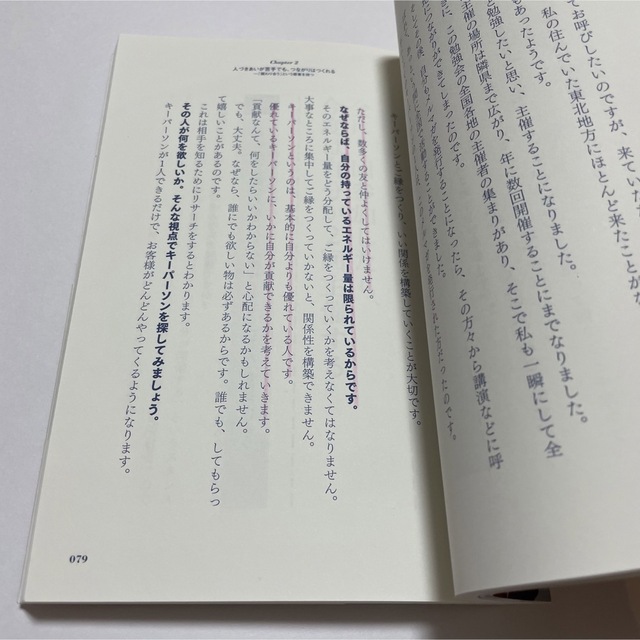 てお呼びしたいのですが、来ていた
私の住んでいた東北地方にほとんど来
もあったようです。
と勉強したいと思い、主催することになりました。
主催の場所は隣県まで広がり、年に数回開催することにまでなりました。
に、この勉強会の全国各地の主催者の集まりがあり、そこで私も一瞬にして全
つながりができてしまったのです。
を発行することになったら、その方々から講演などに呼
Chapter 2
人づきあいが苦手でも、つながりはつくれる
キーパーソンとご縁をつくり、いい関係を構築していくことが大切です。
ただし、数多くの友と仲よくしてはいけません。
なぜならば、自分の持っているエネルギー量は限られているからです。
そのエネルギー量をどう分配して、ご縁をつくっていくかを考えなくてはなりません。
大事なところに集中してご縁をつくっていかないと、関係性を構築できません。
キーパーソンというのは、基本的に自分よりも優れている人です。
優れているキーパーソンに、いかに自分が貢献できるかを考えていきます。
「貢献なんて、何をしたらいいかわからない」と心配になるかもしれません。
でも、大丈夫。なぜなら、誰にでも欲しい物は必ずあるからです。誰でも、してもらっ
て嬉しいことがあるのです。
これは相手を知るためにリサーチをするとわかります。
その人が何を欲しいか。そんな視点でキーパーソンを探してみましょう。
キーパーソンが1人できるだけで、お客様がどんどんやってくるようになります。
079